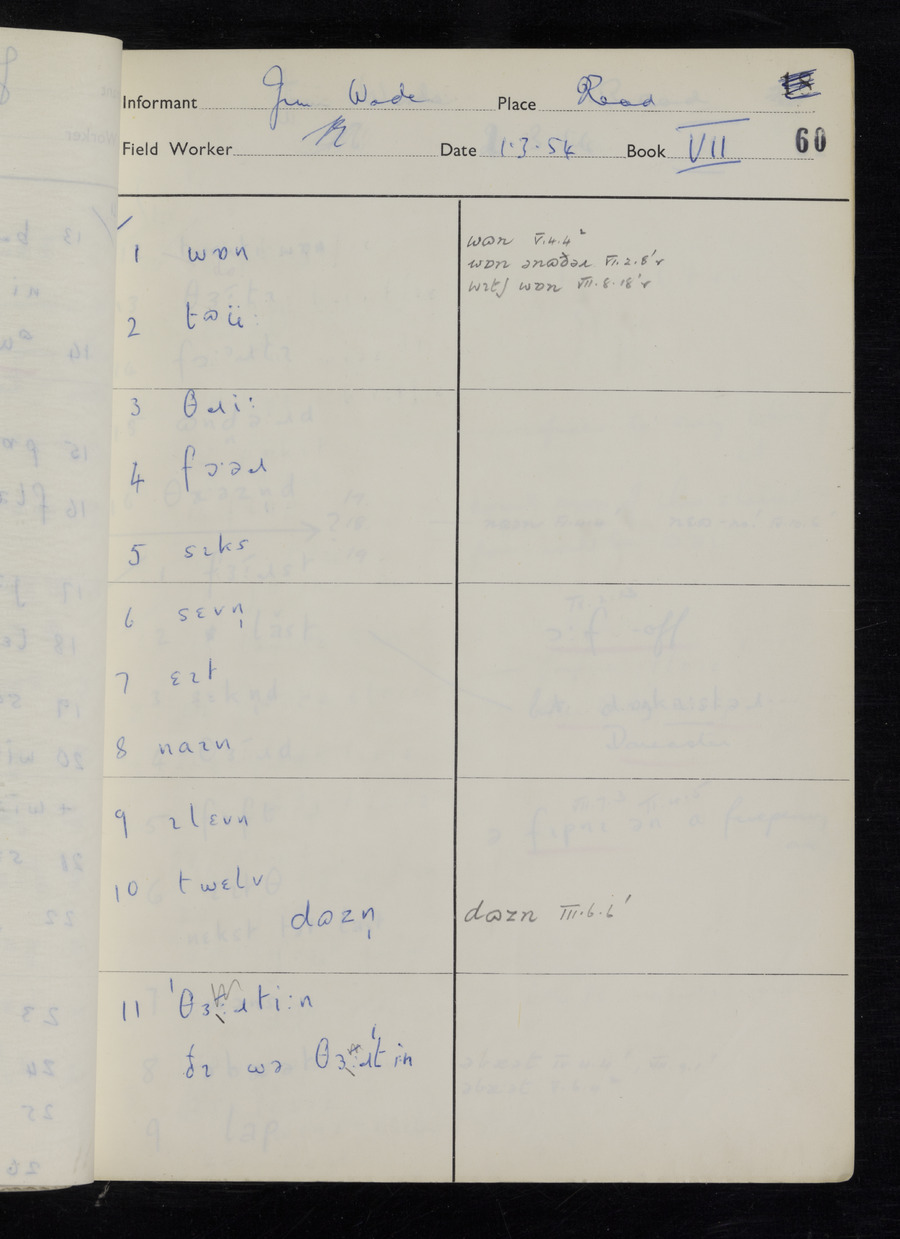 Informant Jim Wade Place Read
Field Worker Date 1·3·54 Book VII 60
1 wɒn
wɷn V.4.4²
wɒn ənɷðəɹ VI.2.8'r
wɪtʃ wɒn VII.8.18'r
2 tɷü:
3 θɹi:
4 fɔ:əɹ
5 sɪks
6 sɛvn̩
7 ɛɪt
8 naɪn
9 ɪlɛvn
10 twɛlv
dɷzn̩ dɷzn III.6.6'
11 'θɜ:ɹti:n
ðɪ wə θɜ:ɹ'tin